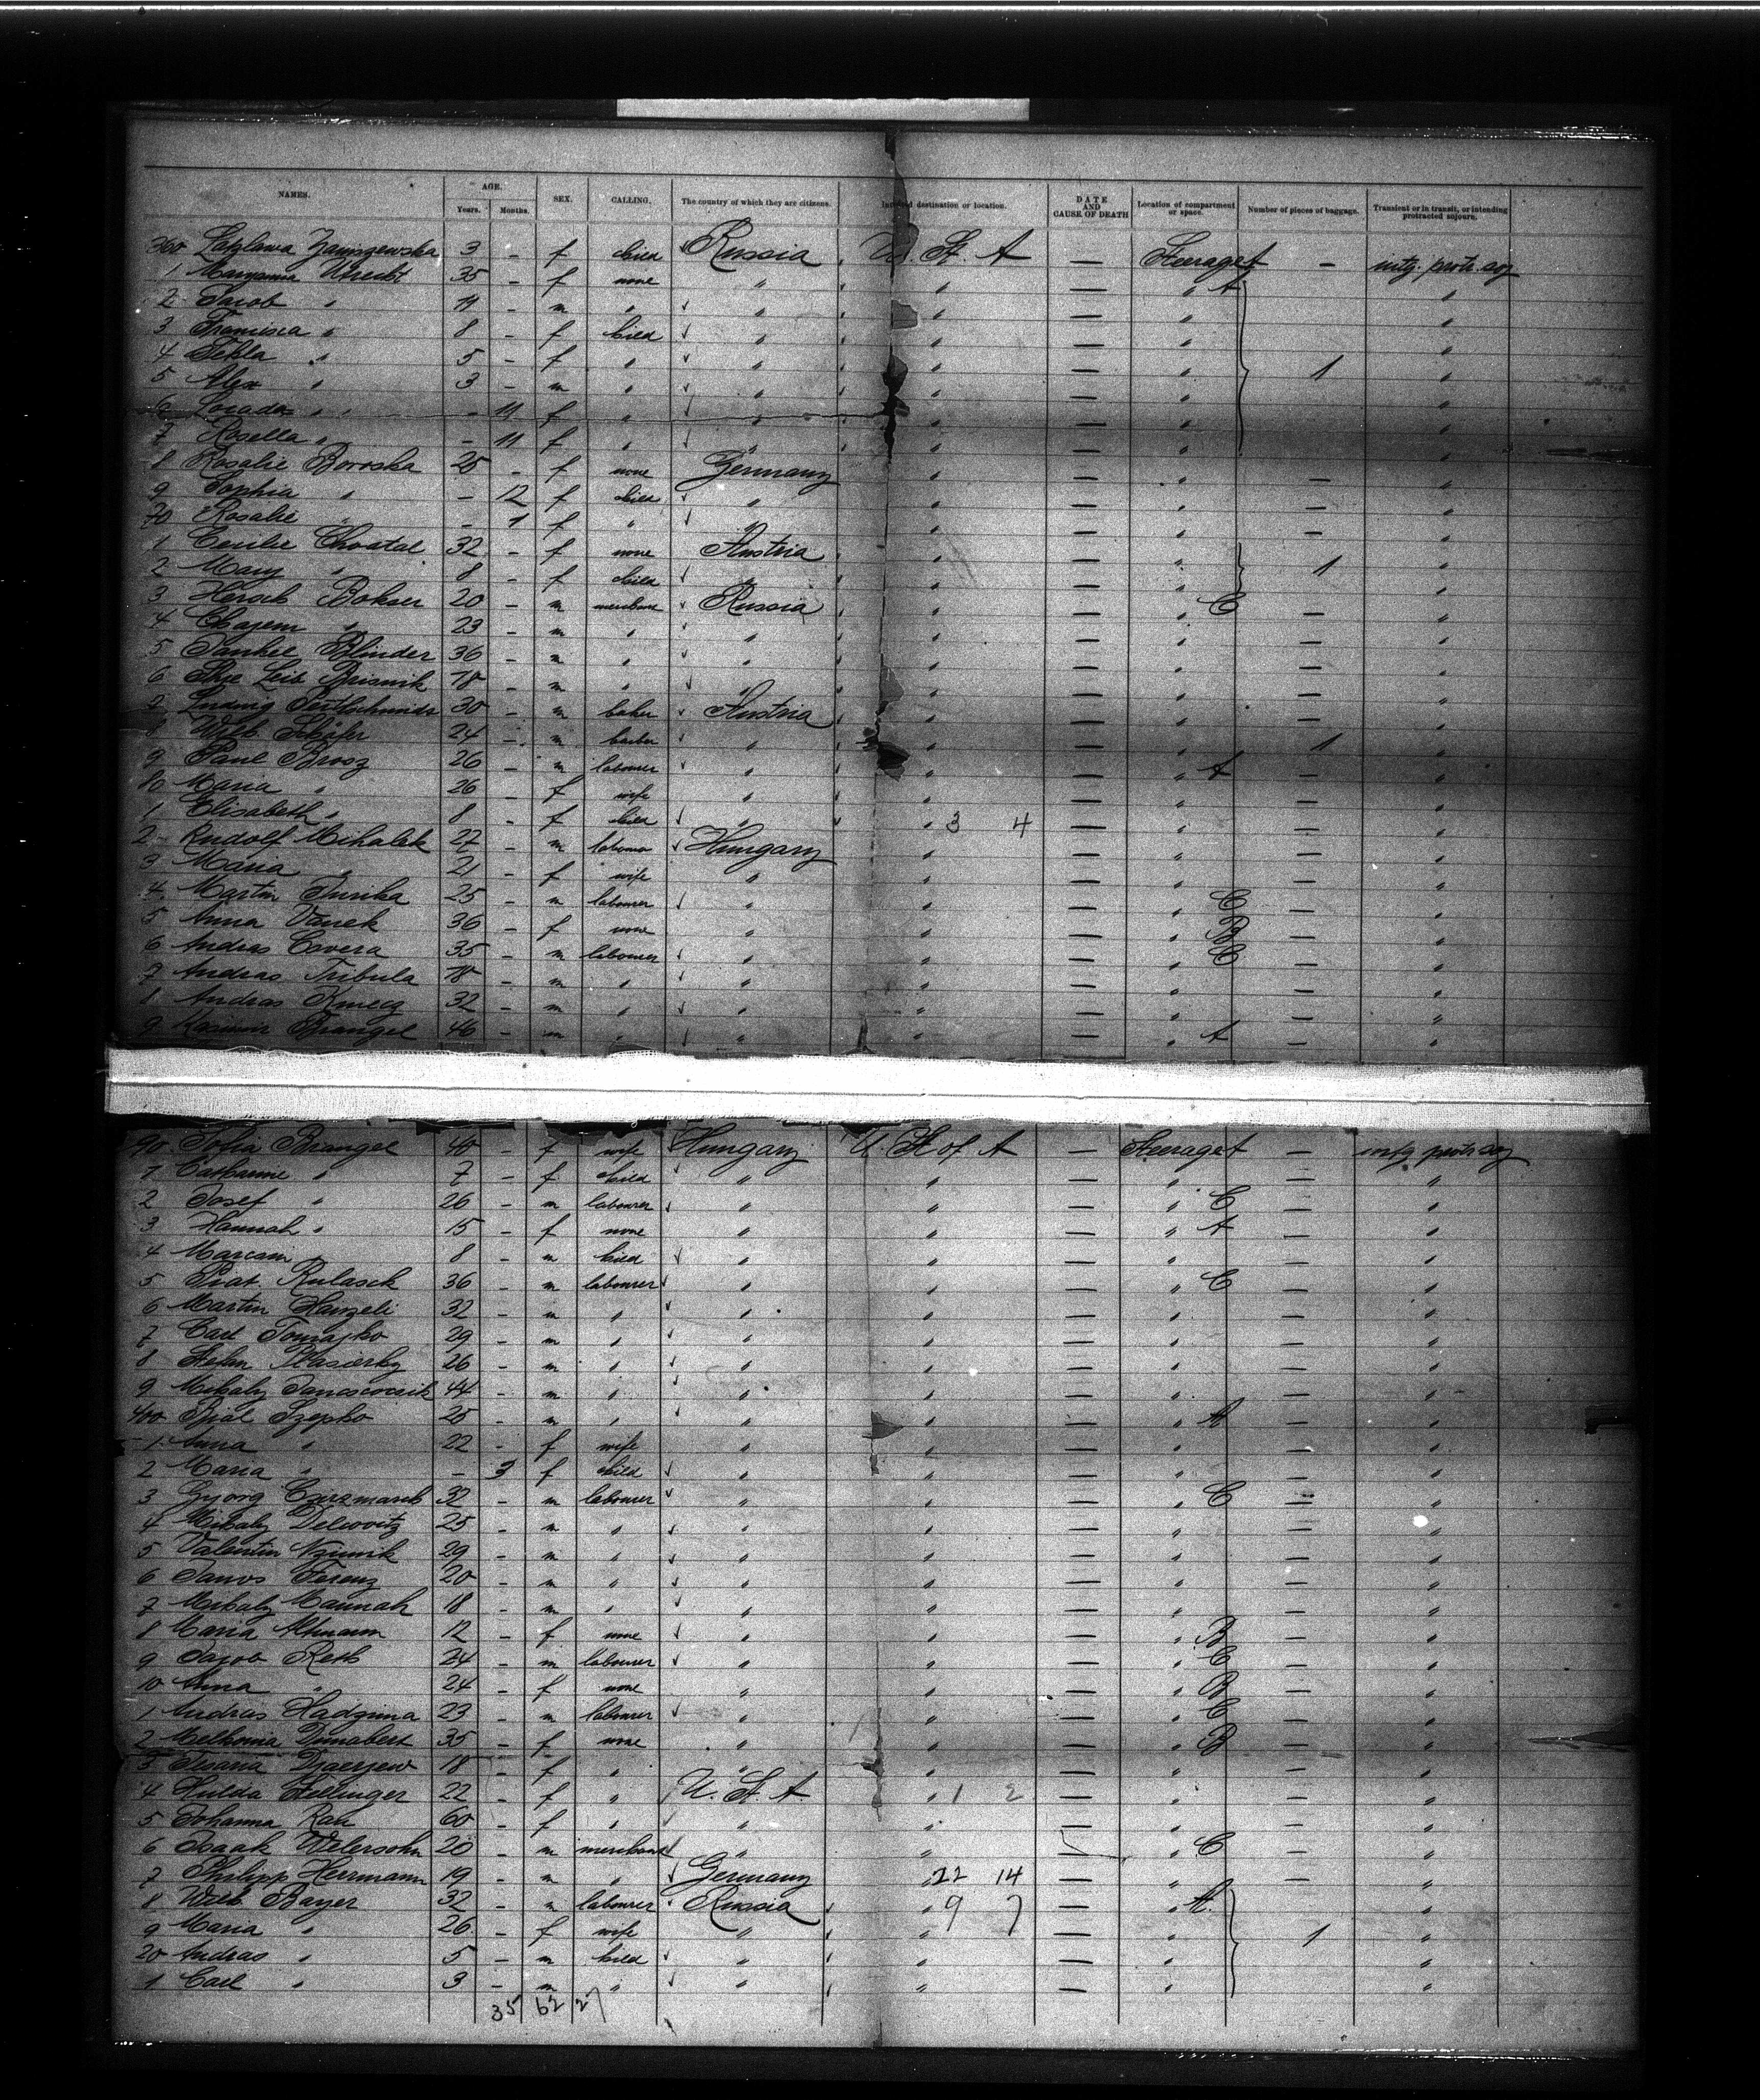 NAMES. AGE. SEX. CALLING. The country of which they are citizens. Intended destination or location. DATE AND CAUSE OF DEATH Location of compartment or space. Number of pieces of baggage. Transient or in transit, or intending protracted sojourn.
Years. Months.
360 3 - f child Russia U. St. A — Steerage — intg. protr. soj
1 35 - f none " " — " A "
2 Jacob " 11 - m " " " — " "
3 Francisca " 8 - f child " " — " "
4 Tekla " 5 - f " " " — " 1 "
5 Alex " 3 - m " " " — " "
6 " - 11 f " " " — " "
7 Rosella " - 11 f " " " — " "
8 Rosalie Boroska 25 - f none Germany " — " — "
9 Sophia " - 12 f child " " — " — "
70 Rosalie " - 1 f " " " — " — "
1 Cecilie Chvatal 32 - f none Austria " — " "
2 Mary " 8 - f child " " — " 1 "
3 Hersch Bokser 20 - m merchant Russia " — " C — "
4 Chajem " 23 - m " " " — " — "
5 Jankel Blinder 36 - m " " " — " — "
6 Leib 18 - m " " " — " — "
7 Ludwig 30 - m baker Austria " — " — "
8 Wilh. Schäfer 24 - m barber " " — " 1 "
9 Paul Brosz 26 - m labourer " " — " A — "
80 Maria " 26 - f wife " " — " — "
1 Elisabeth " 8 - f child " " 3 4 — " — "
2 Rudolf Mihalek 27 - m labourer Hungary " — " — "
3 Maria " 21 - f wife " " — " — "
4 Martin Jurika 25 - m labourer " " — " C — "
5 Anna Vanek 36 - f none " " — " B — "
6 Andras 35 - m labourer " " — " C — "
7 Andras Tribula 18 - m " " " — " — "
8 Andras Kmecz 32 - m " " " — " — "
9 Kasimir Brangel 46 - m " " " — " A — "
90 Sofia Brangel 40 - f wife Hungary U. St of A — Steerage — intg protr. soj
1 Catharine " 7 - f child " " — " — "
2 Josef " 26 - m labourer " " — " C — "
3 Hannah " 15 - f none " " — " A — "
4 " 8 - m child " " — " — "
5 36 - m labourer " " — " C — "
6 Martin Hanzeli 32 - m " " " — " — "
7 Carl Tomajko 29 - m " " " — " — "
8 26 - m " " " — " — "
9 Mihaly 44 - m " " " — " — "
400 Szepko 25 - m " " " — " A — "
1 Anna " 22 - f wife " " — " — "
2 Maria " - 3 f child " " — " — "
3 Gyorg 32 - m labourer " " — " C — "
4 Mihaly 25 - m " " " — " — "
5 Valentin 29 - m " " " — " — "
6 Janos Ferenz 20 - m " " " — " — "
7 Mihaly Hannah 18 - m " " " — " — "
8 Maria Altmann 12 - f none " " — " B — "
9 Jacob Reth 24 - m labourer " " — " C — "
10 Anna " 24 - f none " " — " B — "
1 Andras Hadzima 23 - m labourer " " — " C — "
2 35 - f none " " — " B — "
3 18 - f " " " — " — "
4 Hulda 22 - f " U. St. A. " 1 2 — " — "
5 Johanna Rau 60 - f " " " — " — "
6 Isaak 20 - m merchant " " — " C — "
7 Philipp Herrmann 19 - m " Germany " 22 14 — " — "
8 Wilh. Bayer 32 - m labourer Russia " 9 7 — " A. "
9 Maria " 26 - f wife " " — " 1 "
20 Andras " 5 - m child " " — " "
1 Carl " 3 - m " " " — " "
35 62 27